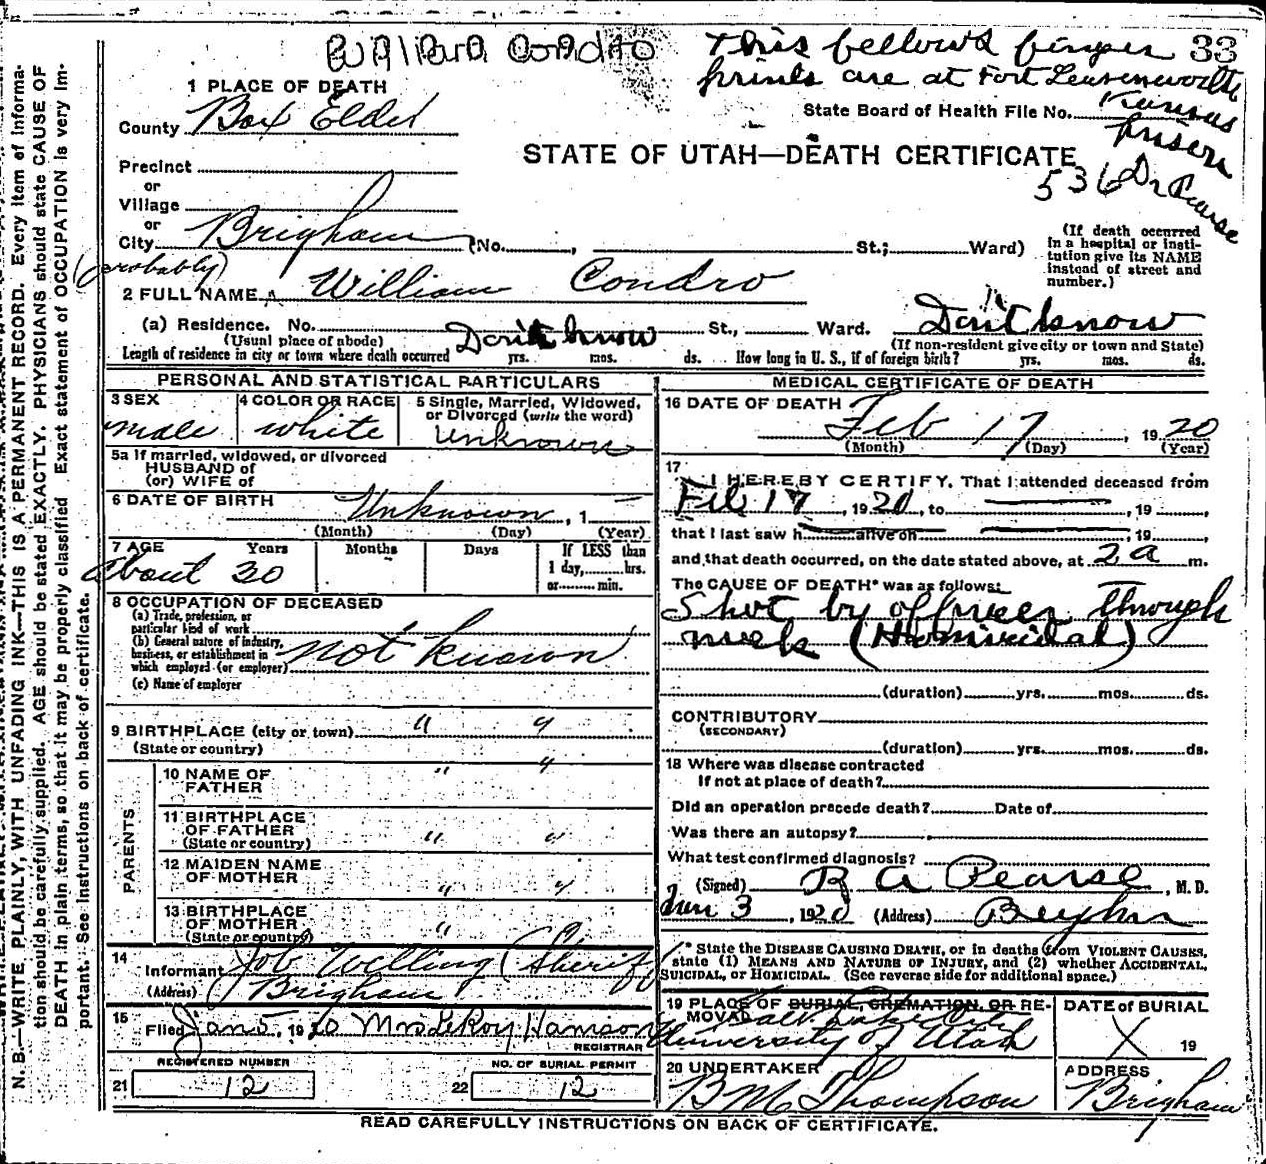 William Condro
This fellows finger 33
prints are at Fort Leavenworth
Kansas
prison
536 Dr Pearse
1 PLACE OF DEATH
County Box Elder
State Board of Health File No.
STATE OF UTAH—DEATH CERTIFICATE
Precinct
or
Village
or
City Brigham (No. , St.; Ward)
(If death occurred
in a hospital or insti-
tution give its NAME
instead of street and
number.)
(probably)
2 FULL NAME William Condro
(a) Residence. No. Don't know St., Ward. Don't know
(Usual place of abode) (If non-resident give city or town and State)
Length of residence in city or town where death occurred yrs. mos. ds. How long in U. S., if of foreign birth? yrs. mos. ds.
PERSONAL AND STATISTICAL PARTICULARS
3 SEX 4 COLOR OR RACE 5 Single, Married, Widowed,
or Divorced (write the word)
male white Unknown
5a If married, widowed, or divorced
HUSBAND of
(or) WIFE of
6 DATE OF BIRTH Unknown , 1
(Month) (Day) (Year)
7 AGE Years Months Days If LESS than
1 day, hrs.
or min.
about 30
8 OCCUPATION OF DECEASED
(a) Trade, profession, or
particular kind of work
(b) General nature of industry,
business, or establishment in
which employed (or employer)
not known
(c) Name of employer
9 BIRTHPLACE (city or town) " "
(State or country)
PARENTS
10 NAME OF
FATHER " "
11 BIRTHPLACE
OF FATHER
(State or country) " "
12 MAIDEN NAME
OF MOTHER " "
13 BIRTHPLACE
OF MOTHER
(State or country) "
14
Informant Job Welling (Sheriff)
(Address) Brigham
15
Filed Jan 5, 1920 Mrs LeRoy Hamson
REGISTRAR
REGISTERED NUMBER NO. OF BURIAL PERMIT
21 12 22 12
MEDICAL CERTIFICATE OF DEATH
16 DATE OF DEATH Feb 17 , 1920
(Month) (Day) (Year)
17
I HEREBY CERTIFY, That I attended deceased from
Feb 17 , 1920 , to , 19 ,
that I last saw h alive on , 19 ,
and that death occurred, on the date stated above, at 2 a m.
The CAUSE OF DEATH* was as follows:
Shot by officer through
neck (Homicidal)
(duration) yrs. mos. ds.
CONTRIBUTORY
(SECONDARY)
(duration) yrs. mos. ds.
18 Where was disease contracted
If not at place of death?
Did an operation precede death? Date of
Was there an autopsy?
What test confirmed diagnosis?
(Signed) R A Pearse , M. D.
Jun 3 , 1920 (Address) Brigham
* State the DISEASE CAUSING DEATH, or in deaths from VIOLENT CAUSES,
state (1) MEANS AND NATURE OF INJURY, and (2) whether ACCIDENTAL,
SUICIDAL, or HOMICIDAL. (See reverse side for additional space.)
19 PLACE OF BURIAL, CREMATION, OR RE- DATE OF BURIAL
MOVAL Salt Lake City
University of Utah X 19
20 UNDERTAKER ADDRESS
B M Thompson Brigham
READ CAREFULLY INSTRUCTIONS ON BACK OF CERTIFICATE.
N. B.—WRITE PLAINLY, WITH UNFADING INK—THIS IS A PERMANENT RECORD. Every item of informa-
tion should be carefully supplied. AGE should be stated EXACTLY. PHYSICIANS should state CAUSE OF
DEATH in plain terms, so that it may be properly classified. Exact statement of OCCUPATION is very im-
portant. See instructions on back of certificate.